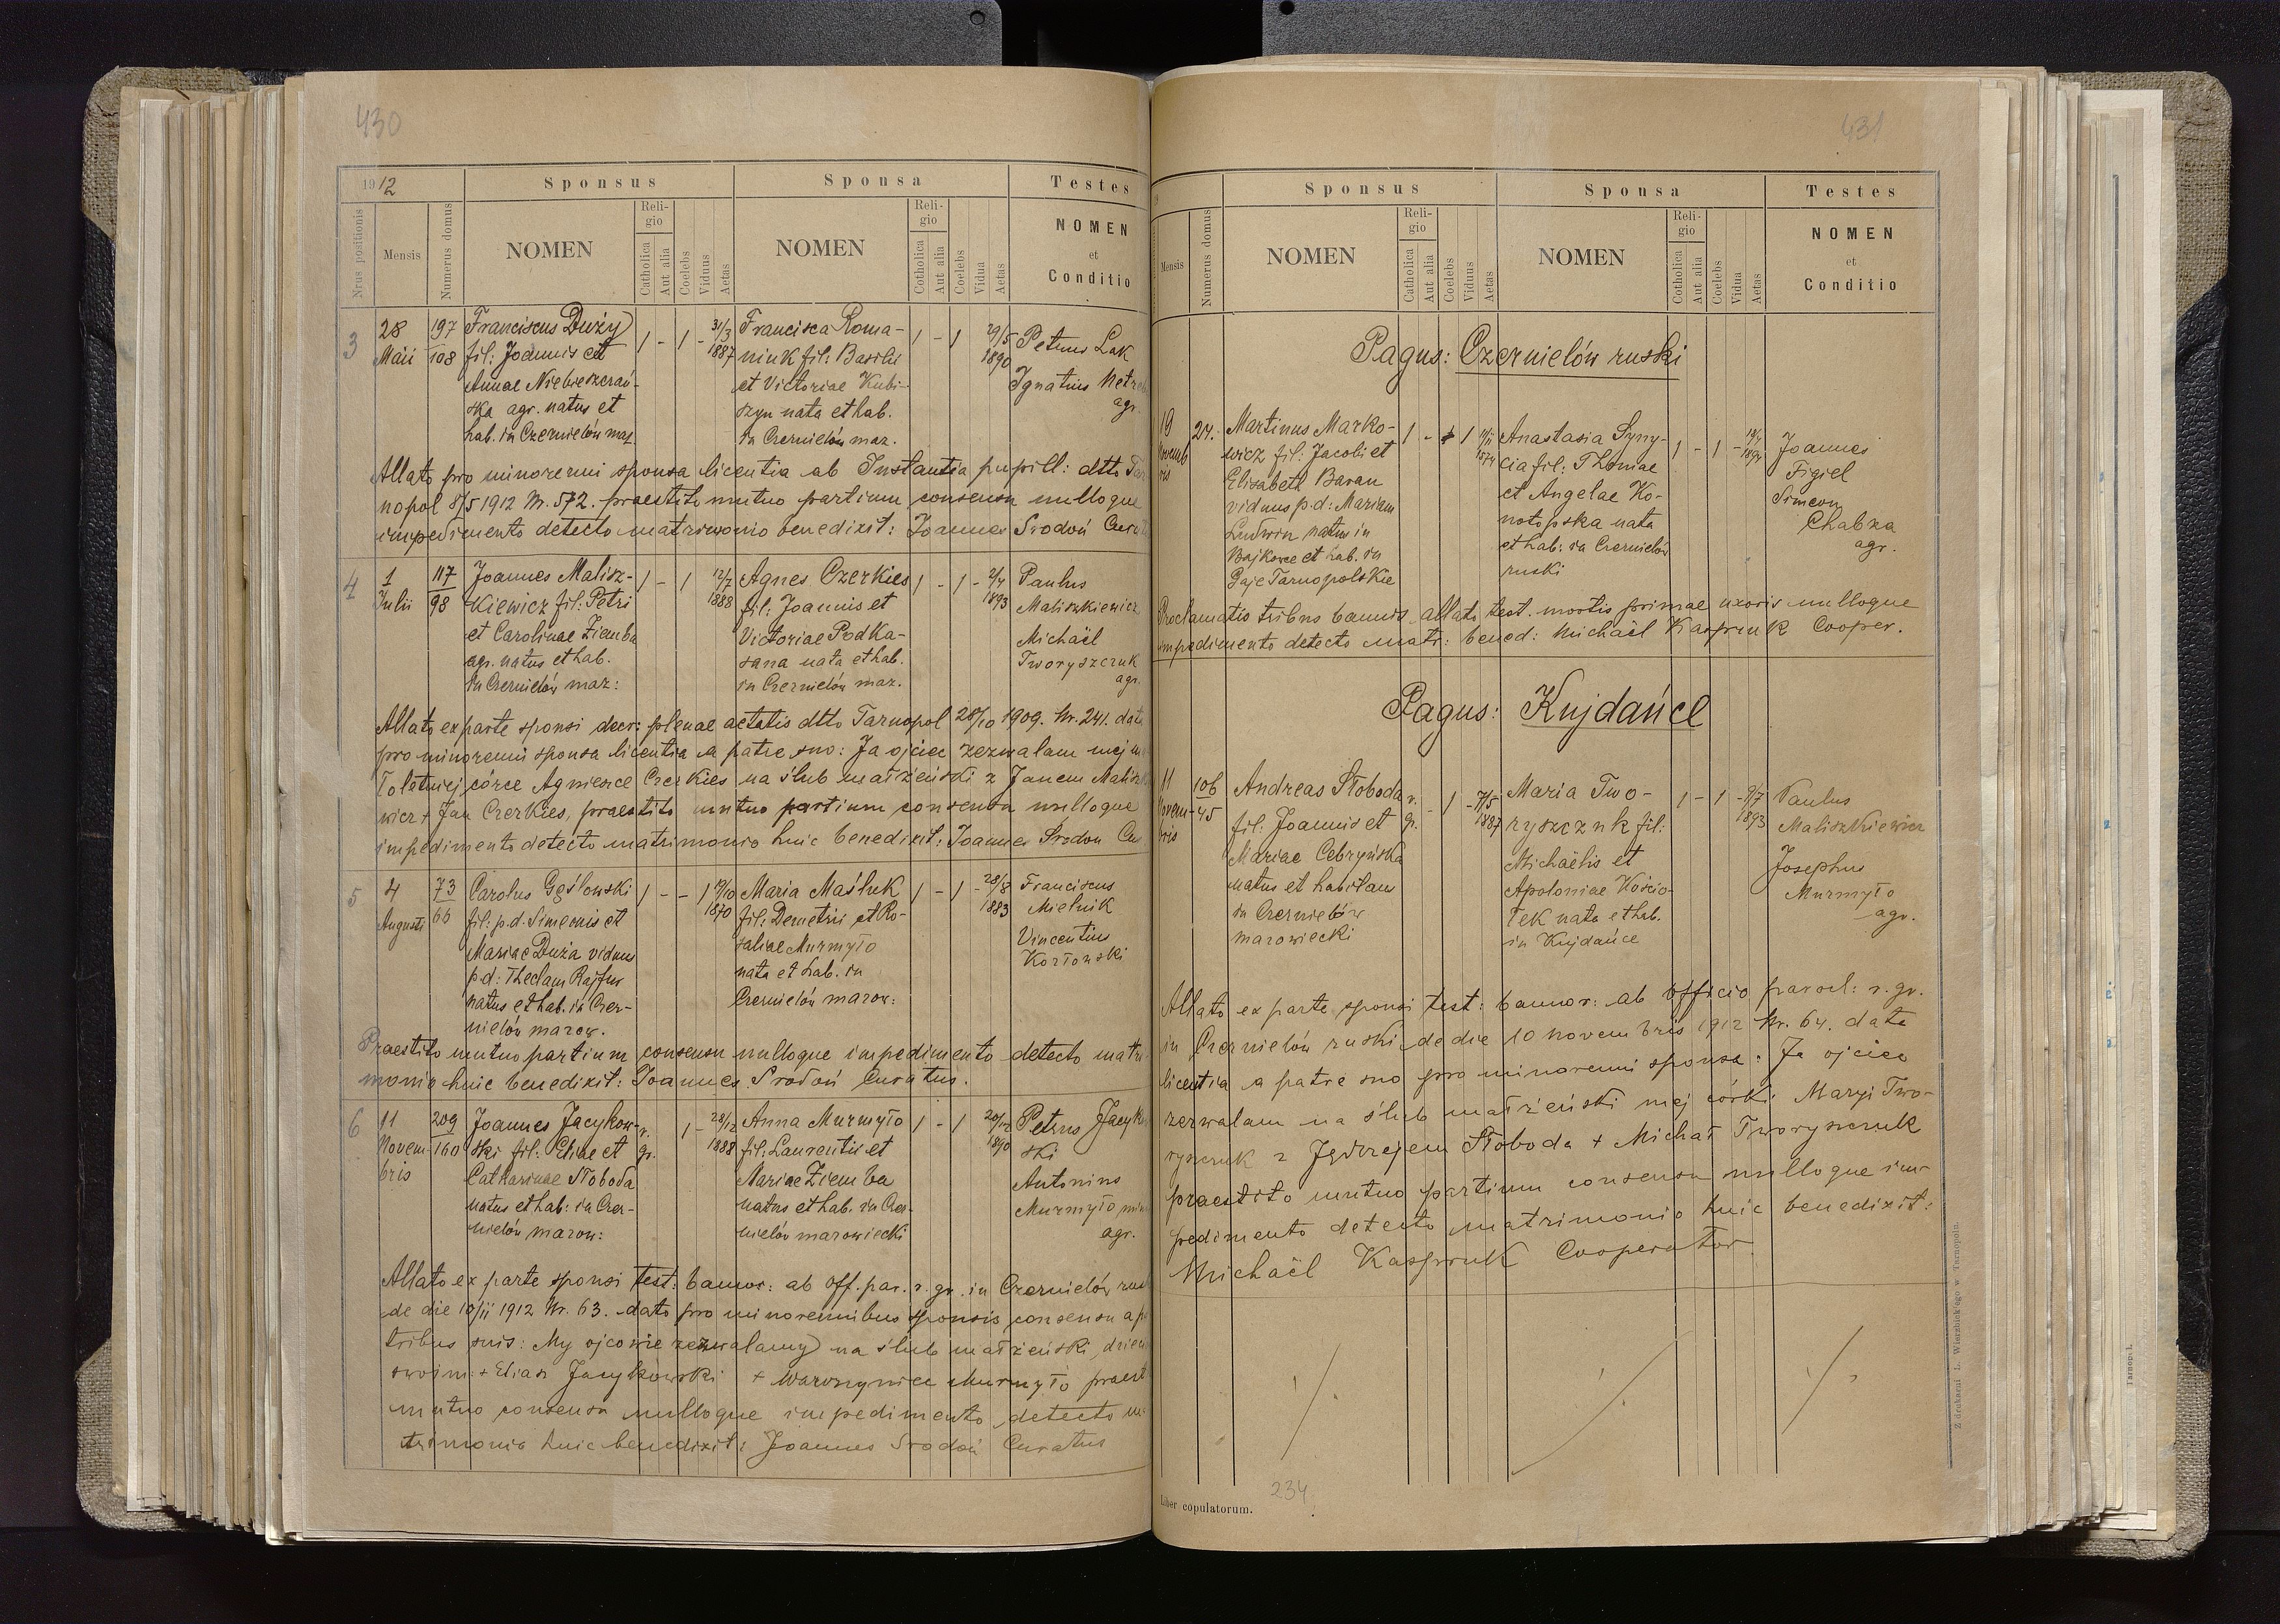 430
1912
Sponsus
Sponsa
Testes
Nrus positionis
Mensis
Numerus domus
NOMEN
Religio
Catholica
Aut alia
Coelebs
Viduus
Aetas
NOMEN
Religio
Catholica
Aut alia
Coelebs
Vidua
Aetas
NOMEN
et
Conditio
3
28
Maii
197
108
Franciscus Duży
fil: Joannis et
Annae
ska agr. natus et
hab. in Czernielów maz
1 - 1 - 31/3
1887
Francisca Roma-
niuk fil: Basilii
et Victoriae Kubi-
szyn nata et hab.
in Czernielów maz.
1 - 1 29/5
1890
Petrus Lak
Ignatius
agr.
Allato pro minorenni sponsa licentia ab Instantia pupill: dtto Tar
nopol 8/5 1912 Nr. 572. praestito mutuo partium consensu nulloque
impedimento detecto matrimonio benedixit: Joannes Srodoń
4
1
Julii
117
98
Joannes Malisz-
kiewicz fil: Petri
et Carolinae Ziemba
agr. natus et hab.
in Czernielów maz:
1 - 1 12/7
1888
Agnes Czerkies
fil: Joannis et
Victoriae Podka-
sana nata et hab.
in Czernielów maz.
1 - 1 - 2/4
1893
Paulus
Maliszkiewicz
Michaël
Tworyszczuk
agr.
Allato ex parte sponsi decr: plenae aetatis dtto Tarnopol 28/10 1909. Nr. 241. data
pro minorenni sponsa licentia a patre suo: Ja ojciec zezwalam mej ma
łoletniej córce Agniesce Czerkies na ślub małżeński z Janem Malisz
wicz + Jan Czerkies, praestito mutuo partium consensu nulloque
impedimento detecto matrimonio huic benedixit: Joannes Srodon Cu
5
4
Augusti
73
66
Carolus Gęślowski
fil: p.d. Simeonis et
Mariae Duża viduus
p.d: Theclam Rajfur
natus et hab. in Czer-
nielów mazow.
1 - - 1 19/10
1870
Maria Maśluk
fil: Demetrii et Ro-
saliae Murmyło
nata et hab. in
Czernielów mazow:
1 - 1 - 28/8
1883
Franciscus
Mielnik
Vincentius
Kozłowski
Praestito mutuo partium consensu nulloque impedimento detecto matri
monio huic benedixit: Joannes Srodoń Curatus.
6
11
Novem
bris
209
160
Joannes Jacykow-
ski fil: Eliae et
Catharinae Słoboda
natus et hab: in Czer-
nielów mazow:
r.
gr.
1 - 28/12
1888
Anna Murmyło
fil: Laurentii et
Mariae Ziemba
natus et hab. in Czer-
nielów mazowiecki
1 - 1 20/12
1890
Petrus Jacyko
ski
Antonius
Murmyło
agr.
Allato ex parte sponsi test: bannor: ab off. par. r. gr. in Czernielów rus
de die 10/11 1912 Nr. 63. dato pro minorennibus sponsis consensu a pa
tribus suis: My ojcowie zezwalamy na ślub małżeński dzieci
swoim: + Eliasz Jacykowski + Wawrzyniec Murmyło praest
mutuo consensu nulloque impedimento detecto ma
trimonio huic benedixit: Joannes Srodoń Curatus
431
Sponsus
Sponsa
Testes
Mensis
Numerus domus
NOMEN
Religio
Catholica
Aut alia
Coelebs
Viduus
Aetas
NOMEN
Religio
Cotholica
Aut alia
Coelebs
Vidua
Aetas
NOMEN
et
Conditio
Pagus: Czernielów ruski
19
Novemb
ris
24.
Martinus Marko-
wicz fil: Jacobi et
Elisabeth Baran
viduus p.d: Mariam
Ludwin natus in
Bajkowce et hab. in
Gaje Tarnopolskie
1 - 1
Anastasia Syny-
cia fil: Thomae
et Angelae Ko-
notopska nata
et hab: in Czernielów
ruski
1 - 1
Joannes
Figiel
Simeon
Chabza
agr.
Proclamatio tribus bannis allato test. mortis primae uxoris nulloque
impedimento detecto matr: bened: Michaël Kaspruk Cooper.
Pagus: Kujdańce
11
Novem-
bris
106
45
Andreas Słoboda
fil: Joannis et
Mariae Cebryńska
natus et habitans
in Czernielów
mazowiecki
r.
gr.
- 1 - 7/5
1887
Maria Two-
ryszczuk fil:
Michaëlis et
Apoloniae Kościo-
łek nata et hab.
in Kujdańce
1 - 1 - 9/7
1893
Paulus
Maliszkiewicz
Josephus
Murmyło
agr.
Allato ex parte sponsi test: bannor: ab officio paroch: r. gr.
in Czernielów ruski de die 10 novembris 1912 Nr. 64. data
licentia a patre suo pro minorenni sponsa: Ja ojciec
zezwalam na ślub małżeński mej córki Maryi Two-
ryszczuk z Jędrzejem Słoboda + Michał Tworyszczuk
praestito mutuo partium consensu nulloque im-
pedimento detecto matrimonio huic benedixit:
Michaël Kaspruk Cooperator
234
Liber copulatorum.
Z drukarni L. Wierzbickiego w Tarnopolu.